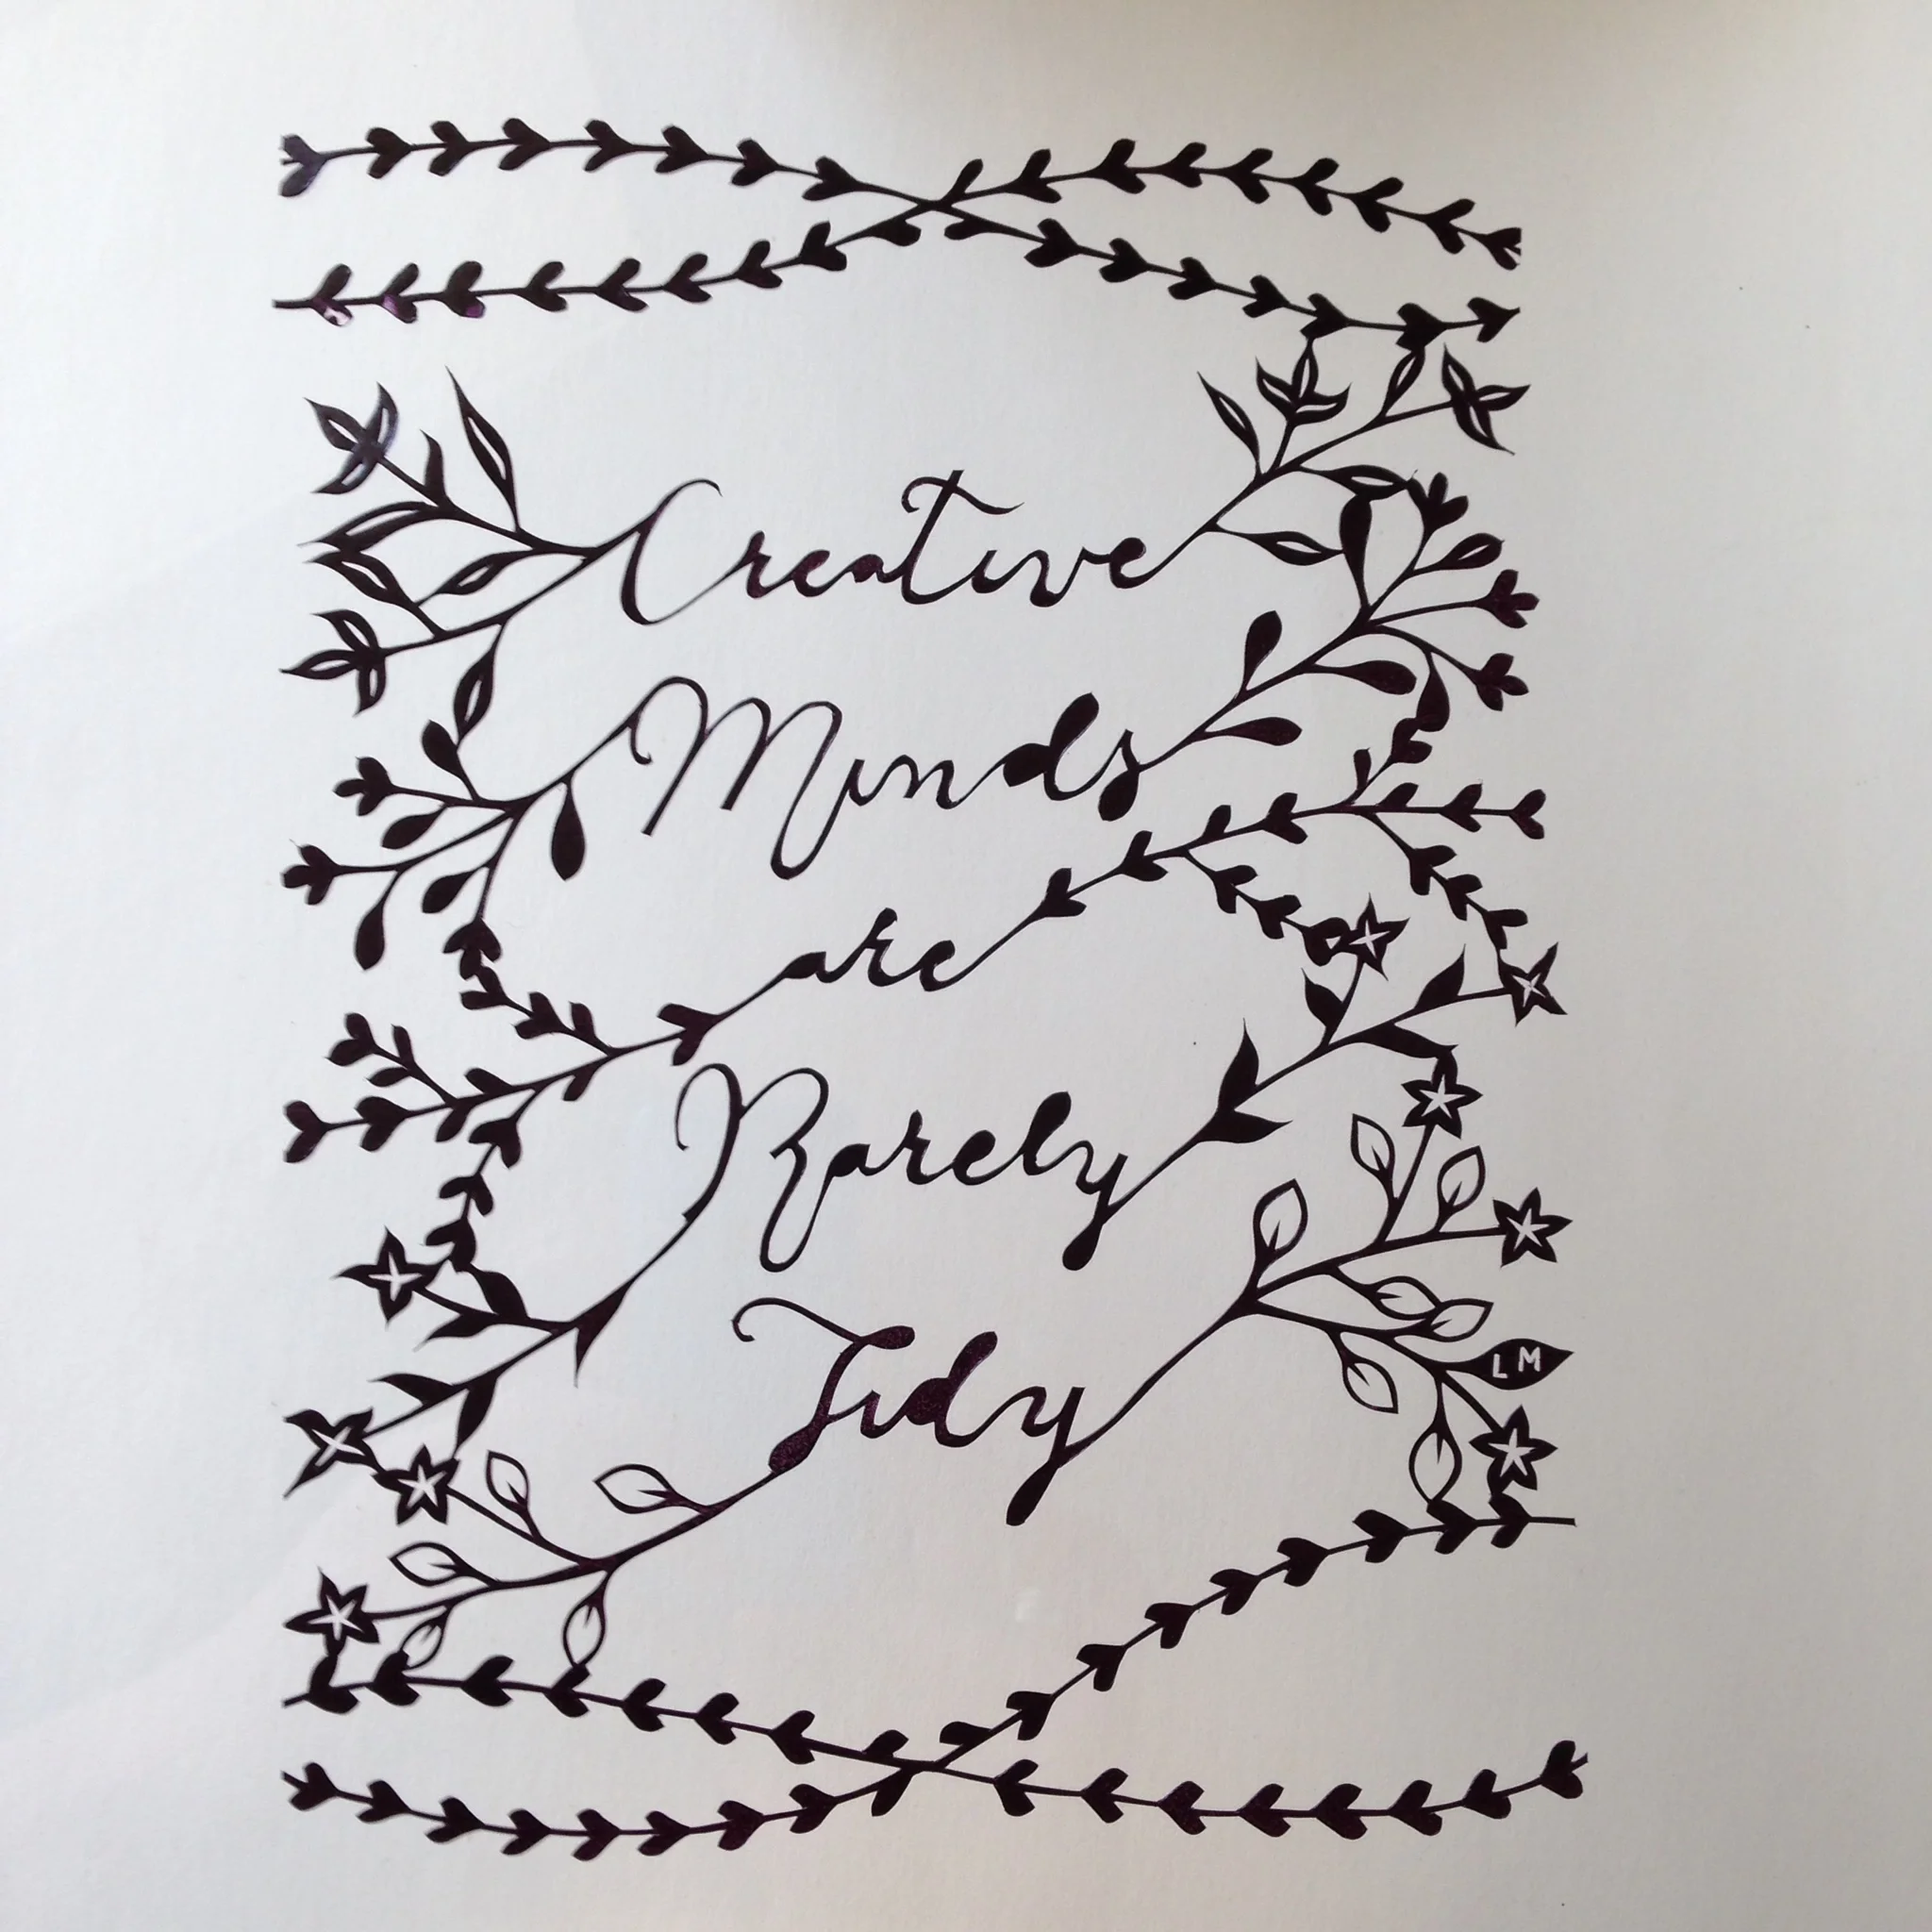 Creative
Minds
are
Rarely
Tidy
LM